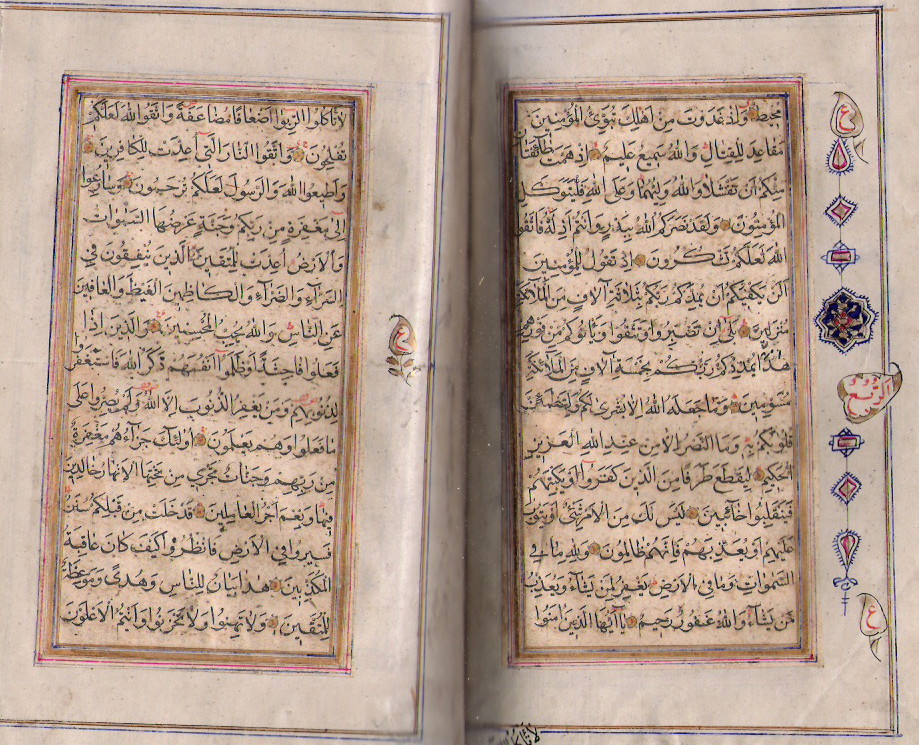 محيط وإذ غدوت من أهلك تبوئ المؤمنين
مقاعد للقتال والله سميع عليم إذ همت طائفتان
منكم أن تفشلا والله وليهما وعلى الله فليتوكل
المؤمنون ولقد نصركم الله ببدر وأنتم أذلة فاتقوا
الله لعلكم تشكرون إذ تقول للمؤمنين
ألن يكفيكم أن يمدكم ربكم بثلاثة آلاف من الملائكة
منزلين بلى إن تصبروا وتتقوا ويأتوكم من فورهم
هذا يمددكم ربكم بخمسة آلاف من الملائكة
مسومين وما جعله الله إلا بشرى لكم ولتطمئن
قلوبكم به وما النصر إلا من عند الله العزيز
الحكيم ليقطع طرفا من الذين كفروا أو يكبتهم
فينقلبوا خائبين ليس لك من الأمر شئ أو يتوب
عليهم أو يعذبهم فإنهم ظالمون ولله ما في
السموات وما في الأرض يغفر لمن يشاء ويعذب
من يشاء والله غفور رحيم يا أيها الذين آمنوا
ع
الربع
ع
لا تأكلوا
لا تأكلوا الربوا أضعافا مضاعفة واتقوا الله لعلكم
تفلحون واتقوا النار التي أعدت للكافرين
وأطيعوا الله والرسول لعلكم ترحمون وسارعوا
إلى مغفرة من ربكم وجنة عرضها السموات
والأرض أعدت للمتقين الذين ينفقون في
السراء والضراء والكاظمين الغيظ والعافين
عن الناس والله يحب المحسنين والذين إذا
فعلوا فاحشة أو ظلموا أنفسهم ذكروا الله فاستغفروا
لذنوبهم ومن يغفر الذنوب إلا الله ولم يصروا على
ما فعلوا وهم يعلمون أولئك جزاؤهم مغفرة
من ربهم وجنات تجري من تحتها الأنهار خالدين
فيها ونعم أجر العاملين قد خلت من قبلكم سنن
فسيروا في الأرض فانظروا كيف كان عاقبة
المكذبين هذا بيان للناس وهدى وموعظة
للمتقين ولا تهنوا ولا تحزنوا وأنتم الأعلون
ع